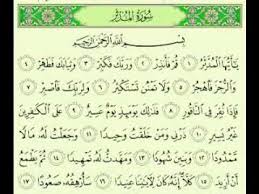 سُورَةُ الْمُدَّثِّرِ
بِسْمِ ٱللَّهِ ٱلرَّحْمَٰنِ ٱلرَّحِيمِ
يَٰٓأَيُّهَا ٱلْمُدَّثِّرُ ١ قُمْ فَأَنذِرْ ٢ وَرَبَّكَ فَكَبِّرْ ٣ وَثِيَابَكَ فَطَهِّرْ ٤
وَٱلرُّجْزَ فَٱهْجُرْ ٥ وَلَا تَمْنُن تَسْتَكْثِرُ ٦ وَلِرَبِّكَ فَٱصْبِرْ ٧
فَإِذَا نُقِرَ فِى ٱلنَّاقُورِ ٨ فَذَٰلِكَ يَوْمَئِذٍ يَوْمٌ عَسِيرٌ ٩ عَلَى ٱلْكَٰفِرِينَ
غَيْرُ يَسِيرٍ ١٠ ذَرْنِى وَمَنْ خَلَقْتُ وَحِيدًا ١١ وَجَعَلْتُ لَهُۥ مَالًا
مَّمْدُودًا ١٢ وَبَنِينَ شُهُودًا ١٣ وَمَهَّدتُّ لَهُۥ تَمْهِيدًا ١٤ ثُمَّ يَطْمَعُ
أَنْ أَزِيدَ ١٥ كَلَّآ إِنَّهُۥ كَانَ لِءَايَٰتِنَا عَنِيدًا ١٦ سَأُرْهِقُهُۥ صَعُودًا ١٧